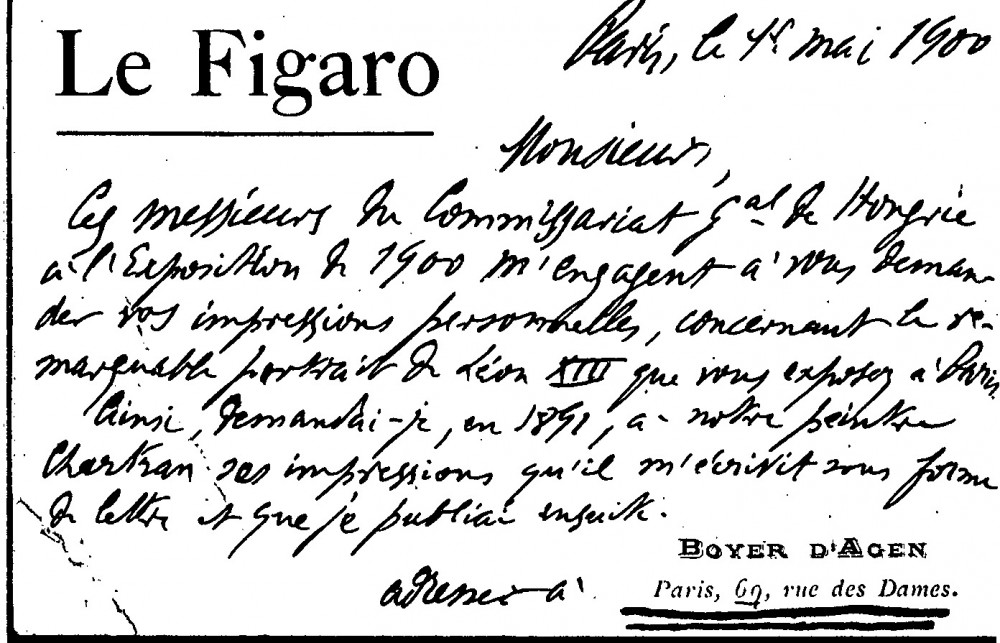 Le Figaro
Paris, le 1er mai 1900
Monsieur,
Ces messieurs du Commissariat Gal de Hongrie
à l'Exposition de 1900 m'engagent à vous deman-
der vos impressions personnelles, concernant le re-
marquable portrait de Léon XIII que vous exposez à Paris.
Ainsi, demandai-je, en 1891, à notre peintre
Chartran ses impressions qu'il m'écrivit sous forme
de lettre et que je publiai ensuite.
BOYER D'AGEN
adresser à
Paris, 69, rue des Dames.